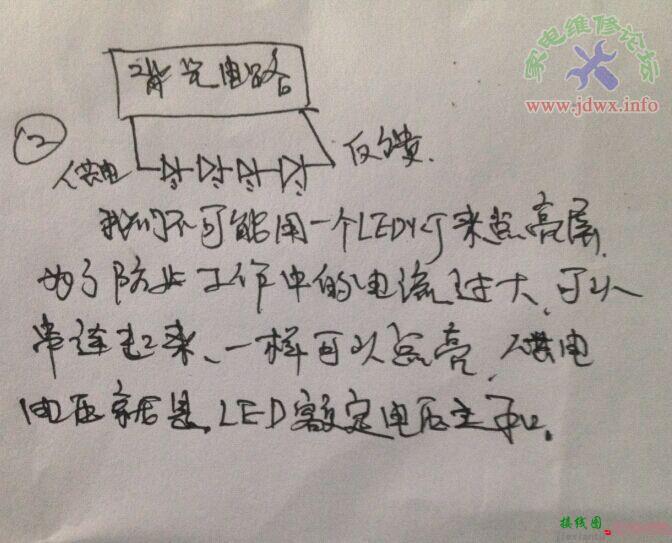 家电维修论坛
www.jdwx.info
背光电路
②
供电
反馈.
我们不可能用一个LED灯来点亮屏.
为了防止工作中的电流过大,可以
串连起来、一样可以点亮,供电
电压就是,LED额定电压之和.
接线图